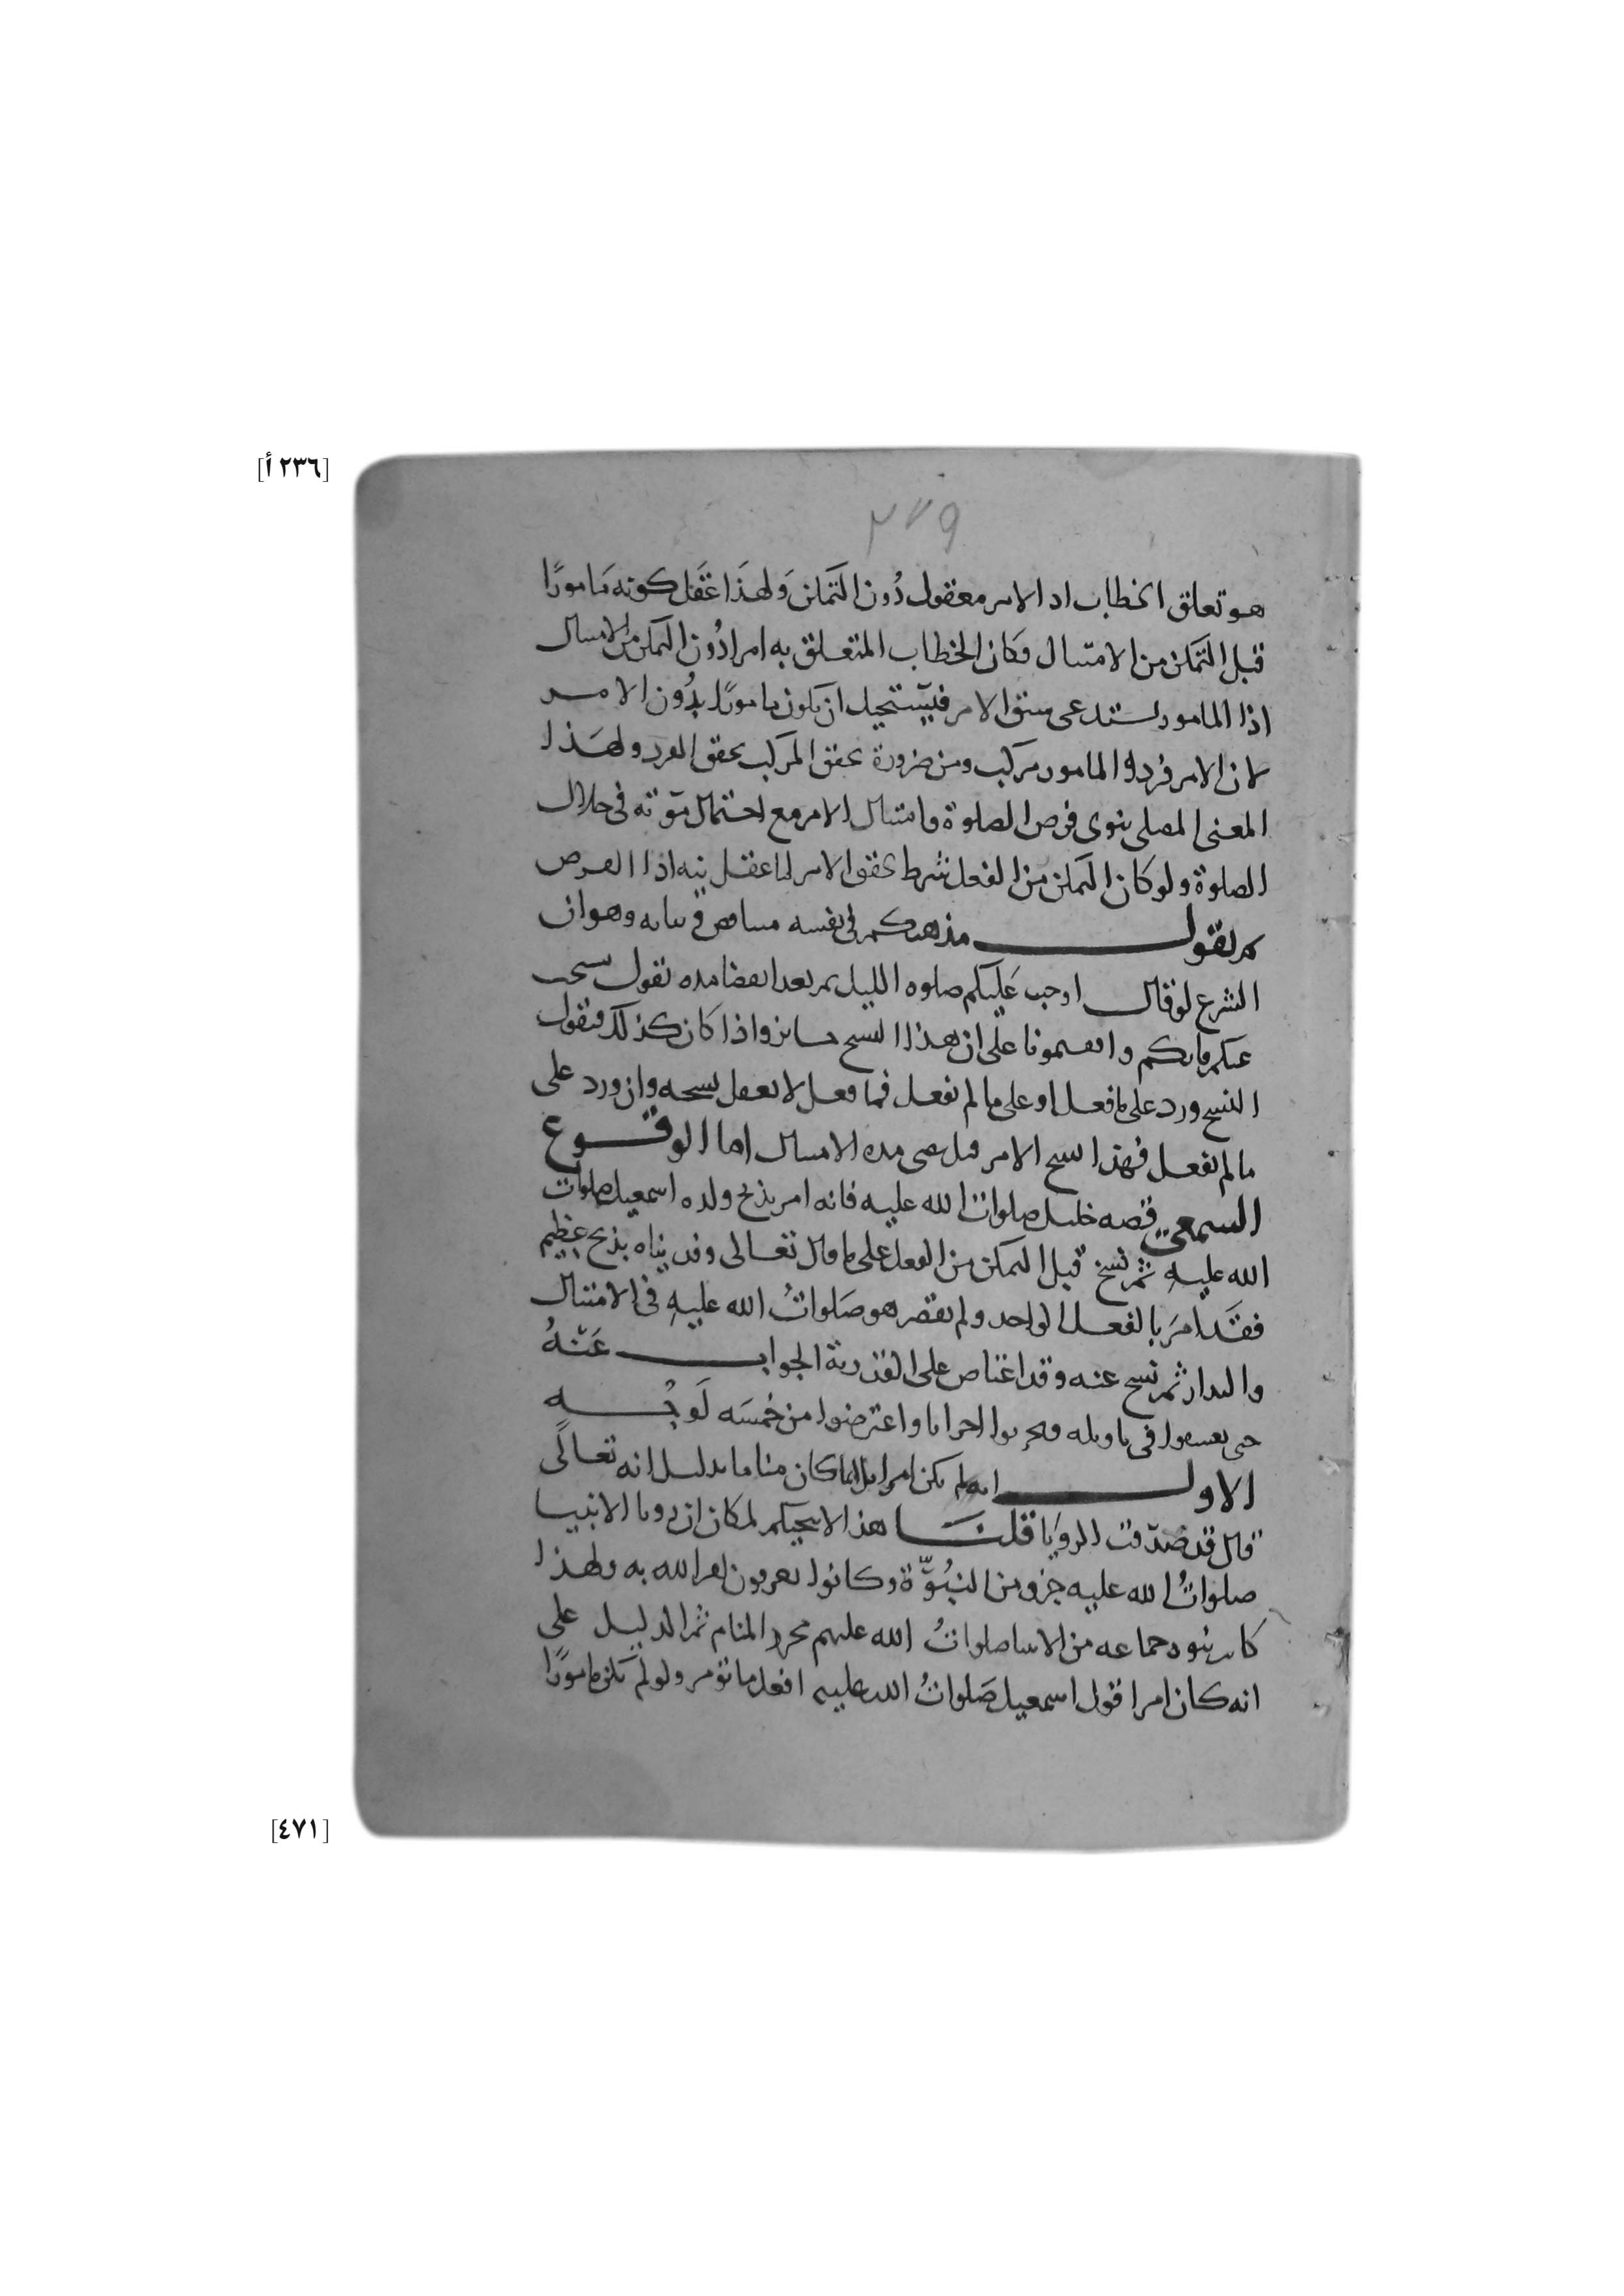 [٢٣٦ أ]
٢٧٩
هو تعلق الخطاب اد الامر معقول دُون التمكن وَلهَذا عَقَل كونه مَامورًا
قبل التمكن من الامتثال فكان الخطاب المتعلق به امرا دُون التمكن من الامتثال
اذا المامور يستدعى سبق الامر فيستحيل ان يكون مامورًا بدُون الامر
لان الامر فرد والمامور مركب ومن ضرورة تحقق المركب تحقق الفرد ولهَذا
المعنى المصلى ينوى فرض الصلوة وامتثال الامر مع احتمال موته فى خلال
الصلوة ولو كان التمكن من الفعل شرط تحقق الامر لما عقل نيه اذا الفرض
ثم نقول مذهبكم فى نفسه متناقض وهو ان
الشرع لو قال اوجبت عَليكم صلوه الليل ثم بعد انقضا مده نقول نسخت
عنكم وا على ان هذا النسخ جايز واذا كان كذلك فنقول
النسخ ورد على ما فعل او على ما لم نفعل فما فعل لا يعقل نسخه وان ورد على
ما لم نفعل فهذا نسخ الامر قبل مضى مده الامتثال اما الوقوع
السمعى قصه خليل صلوات الله عليه فانه امر بذبح ولده اسمعيل صلوات
الله عليهِ ثم نسخ قبل التمكن من الفعل على ما قال تعالى وفديناه بذبح عظيم
فقَد امرَ بالفعل الواحد ولم يقصر هو صَلواتُ الله عليهِ فى الامتثال
والبدار ثم نسخ عنه وقد اعتاص على القدرية الجواب عَنهُ
حى تعسفوا فى تاويله وتحزبوا احزابا واعترضوا من خمسَه اَوجُه
الاول انه لم يكن امرا بل انما كان مناما بدليل انه تعالى
قال قد صَدقت الروَيا قلنَا هذا لا ينجيكم لمكان ان رويا الانبيا
صلواتُ الله عليه جزو من النبُوّة وكانوا يعرفون امر الله به ولهذا
كانت نبوه جماعه من الانبيا صلواتُ الله عليهم مجرد المنام ثم الدليل على
انه كان امرا قول اسمعيل صَلواتُ الله عليه افعل ما تومر ولو لم يكن مامورًا
[٤٧١]